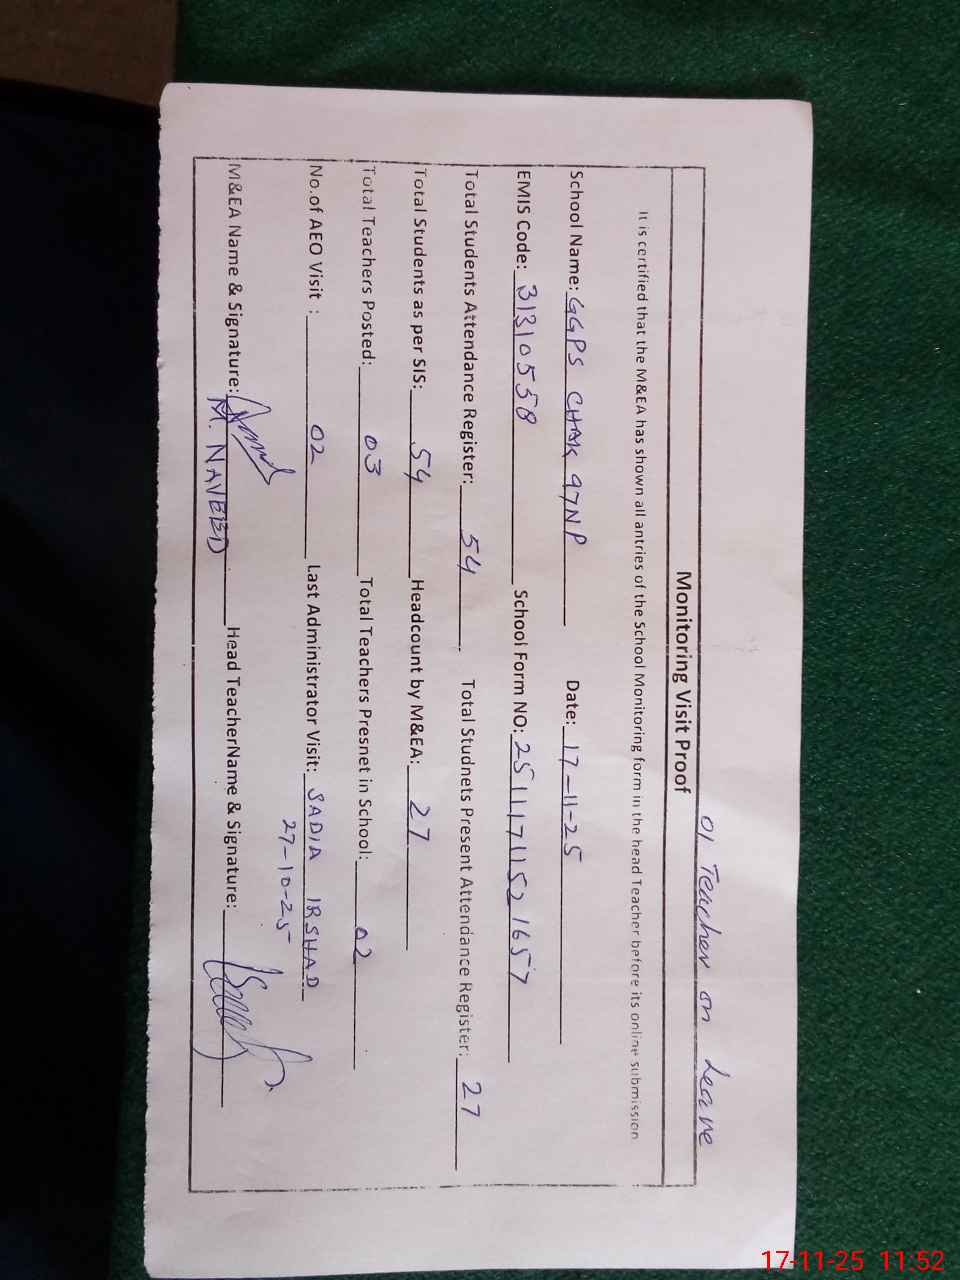 01 Teacher on Leave
Monitoring Visit Proof
It is certified that the M&EA has shown all antries of the School Monitoring form in the head Teacher before its online submission
School Name: GGPS CHAK 97NP Date: 17-11-25
EMIS Code: 31310558 School Form NO: 25111711521657
Total Students Attendance Register: 54 Total Studnets Present Attendance Register: 27
Total Students as per SIS: 54 Headcount by M&EA: 27
Total Teachers Posted: 03 Total Teachers Presnet in School: 02
No.of AEO Visit : 02 Last Administrator Visit: SADIA IRSHAD
27-10-25
M&EA Name & Signature: Head TeacherName & Signature:
M. NAVEED
17-11-25 11:52